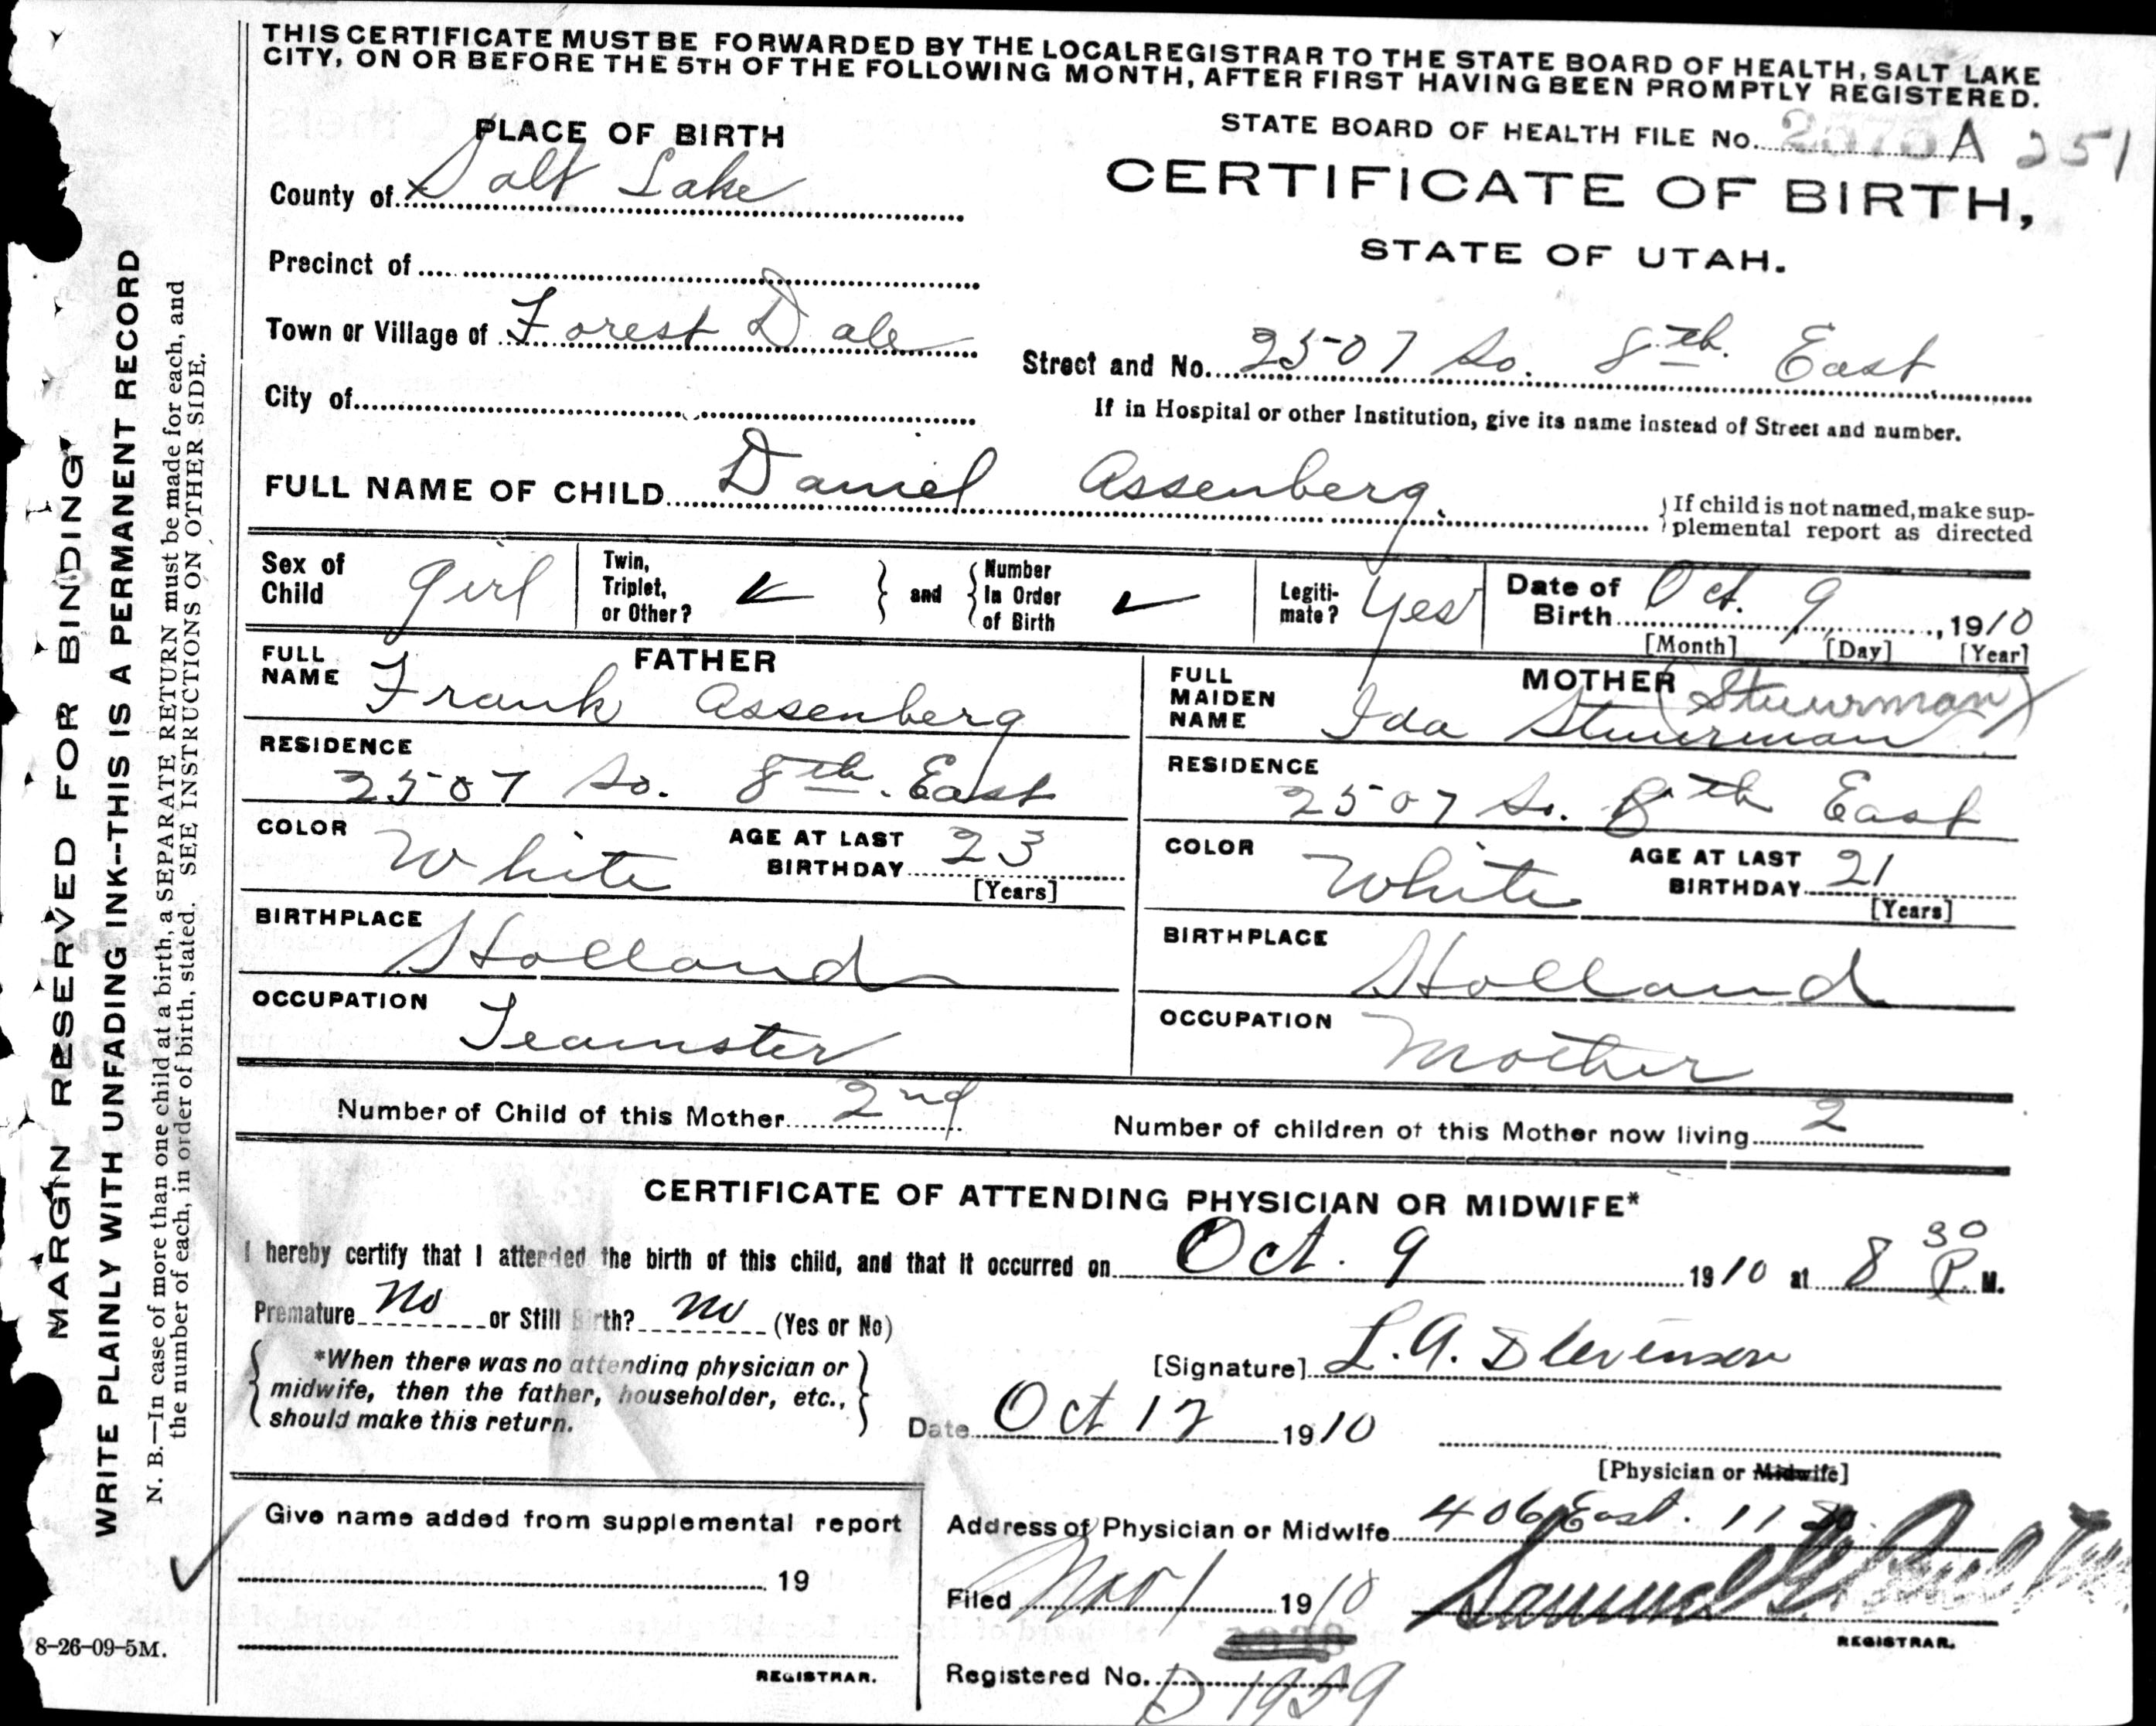 THIS CERTIFICATE MUST BE FORWARDED BY THE LOCAL REGISTRAR TO THE STATE BOARD OF HEALTH, SALT LAKE
CITY, ON OR BEFORE THE 5TH OF THE FOLLOWING MONTH, AFTER FIRST HAVING BEEN PROMPTLY REGISTERED.
PLACE OF BIRTH
STATE BOARD OF HEALTH FILE No. A 251
County of Salt Lake
CERTIFICATE OF BIRTH,
STATE OF UTAH.
Precinct of
Town or Village of Forest Dale
Street and No. 2507 So. 8th. East
City of
If in Hospital or other Institution, give its name instead of Street and number.
FULL NAME OF CHILD Daniel Assenberg.
If child is not named, make sup-
plemental report as directed
Sex of Child girl
Twin, Triplet, or Other?
and
Number In Order of Birth
Legiti-mate? Yes
Date of Birth Oct. 9, 1910
[Month] [Day] [Year]
FATHER
FULL NAME Frank Assenberg
RESIDENCE
2507 So. 8th. East
COLOR White
AGE AT LAST BIRTHDAY 23
[Years]
BIRTHPLACE
Holland
OCCUPATION
Teamster
MOTHER (Stuurman)
FULL MAIDEN NAME Ida Stuurman
RESIDENCE
2507 So. 8th East
COLOR White
AGE AT LAST BIRTHDAY 21
[Years]
BIRTHPLACE
Holland
OCCUPATION
Mother
Number of Child of this Mother 2nd
Number of children of this Mother now living 2
CERTIFICATE OF ATTENDING PHYSICIAN OR MIDWIFE*
I hereby certify that I attended the birth of this child, and that it occurred on Oct. 9 1910 at 8 30 P. M.
Premature No or Still Birth? no (Yes or No)
*When there was no attending physician or
midwife, then the father, householder, etc.,
should make this return.
[Signature] L. A. Stevenson
Date Oct 12 1910
[Physician or Midwife]
Give name added from supplemental report
19
REGISTRAR.
Address of Physician or Midwife 406 East. 11 So.
Filed Nov 1 1910
Samuel G.
REGISTRAR.
Registered No. D 1959
MARGIN RESERVED FOR BINDING
WRITE PLAINLY WITH UNFADING INK--THIS IS A PERMANENT RECORD
N. B.—In case of more than one child at a birth, a SEPARATE RETURN must be made for each, and
the number of each, in order of birth, stated. SEE INSTRUCTIONS ON OTHER SIDE.
8-26-09-5M.